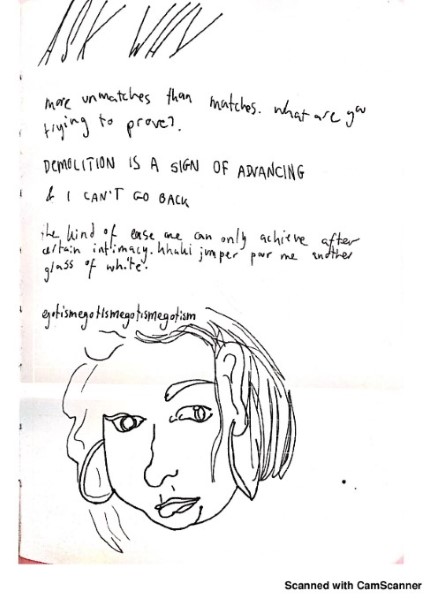 ASK WHY
more unmatches than matches. what are you
trying to prove?
DEMOLITION IS A SIGN OF ADVANCING
& I CAN'T GO BACK
the kind of ease one can only achieve after
certain intimacy. khaki jumper pour me another
glass of white.
egotismegotismegotismegotism
Scanned with CamScanner